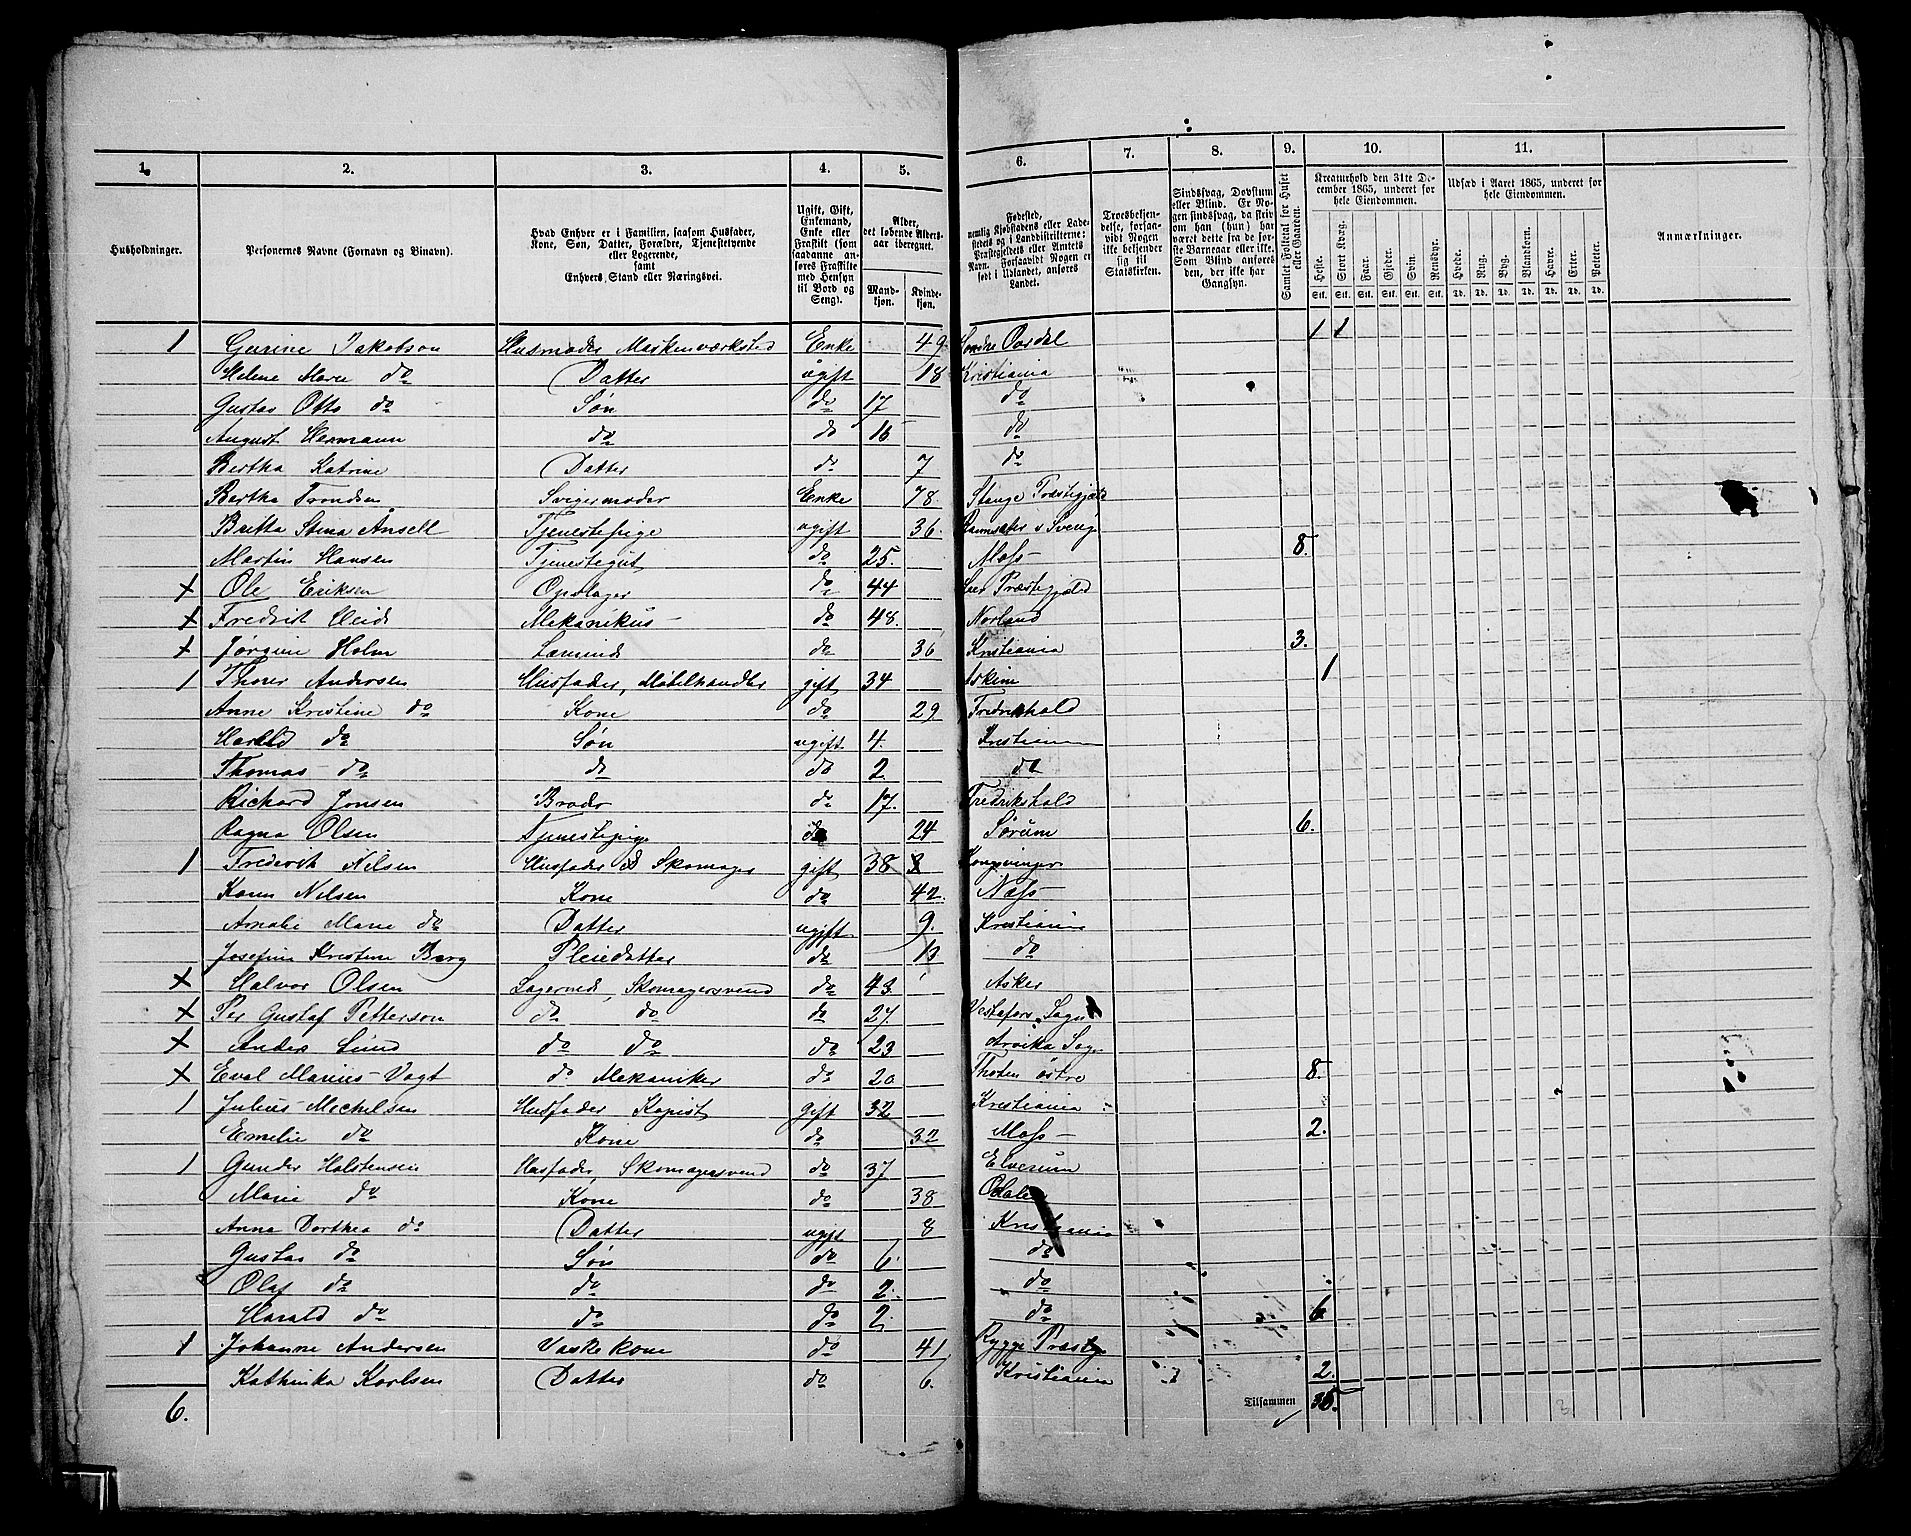 1. 2. 3. 4. 5. 6. 7. 8. 9. 10. 11.
Husholdninger.
Personernes Navne (Fornavn og Binavn).
Hvad Enhver er i Familien, saasom Husfader,
Kone, Søn, Datter, Forældre, Tjenestetyende
eller Logerende,
samt
Enhvers Stand eller Næringsvei.
Ugift, Gift,
Enkemand,
Enke eller
Fraskilt (som
saadanne anføres
Fraskilte
med Hensyn
til Bord og
Seng).
Alder,
det løbende Aldersaar
iberegnet.
Mandkjøn.
Kvindekjøn.
Fødested,
nemlig Kjøbstadens eller Ladestedets
og i Landdistrikterne:
Præstegjeldets eller Amtets
Navn. Forsaavidt Nogen er
født i Udlandet, anføres
Landet.
Troesbekjendelse,
forsaavidt
Nogen
ikke bekjender
sig til
Statskirken.
Sindssvag, Døvstum
eller Blind. Er Nogen
sindssvag, da skriv
om han (hun) har
været dette fra de første
Barneaar eller ikke.
Som Blind anføres
den, der ikke har
Gangsyn.
Samlet Folketal for Huset
eller Gaarden.
Kreaturhold den 31te December
1865, underet for
hele Eiendommen.
Heste. Stort Kvæg. Faar. Gjeder. Svin. Rensdyr.
Stk. Stk. Stk. Stk. Stk. Stk.
Udsæd i Aaret 1865, underet for
hele Eiendommen.
Hvede. Rug. Byg. Blandkorn. Havre. Erter. Poteter.
Td. Td. Td. Td. Td. Td. Td.
Anmærkninger.
1 Gurine Jakobson Husmoder Enke 49. Søndre 1 1
Helene Marie do Datter ugift 18 Kristiania
Gustav Otto do Søn do 17 do
August Hermann do do 16 do
Bertha Katrine Datter do 7 do
Bertha Trondsen Svigermoder Enke 78. Stange Præstegjeld
Britta Stina Ansell Tjenestepige ugift 36.
Martin Hansen Tjenestegut do 25. Moss 8.
x Ole Eriksen Opdager do 44 Præstegjæld
x Fredrik Heide Mekanikus do 48. Norland
x Jørgine Holm do 36 Kristiania 3.
1 Thorer Andersen Husfader, Møbelhandler gift 34 Askim 1
Anne Kristine do Kone do 29 Fredrikshald
Harald do Søn ugift 4. Kristiania
Thomas do do do 2 do
Richard Jonsen Broder do 17. Fredrikshald
Ragna Olsen Tjenestepige do 24 Sørum 6.
1 Frederik Nilsen Husfader Skomager gift 38 Kongsvinger
Karen Nilsen Kone do 42. Næss
Amalie Marie do Datter ugift 9. Kristiania
Josefine Kristine Berg Pleiedatter do 13 do
x Halvor Olsen Skomagersvend do 43. Asker
x Per Gustaf Petterson do do do 27. Sogn
x Anders Lund do do do 23 Arvika Sogn
x Eval Marius Vogt do Mekaniker do 20 Thoten østre 8.
1 Julius Mechelsen Husfader Kopist gift 32 Kristiania
Emelie do Kone do 32 Moss 2.
1 Gunder Halstensen Husfader Skomagersvend do 37 Elverum
Marie do Kone do 38 Odalen
Anna Dorthea do Datter ugift 8 Kristiania
Gustav do Søn do 6. do
Olaf do do do 2. do
Harald do do do 2. do 6
1 Johanne Andersen Vaskekone do 41 Rygge Præstg
Kathinka Karlsen Datter do 6. Kristiania 2.
6. Tilsammen 35.